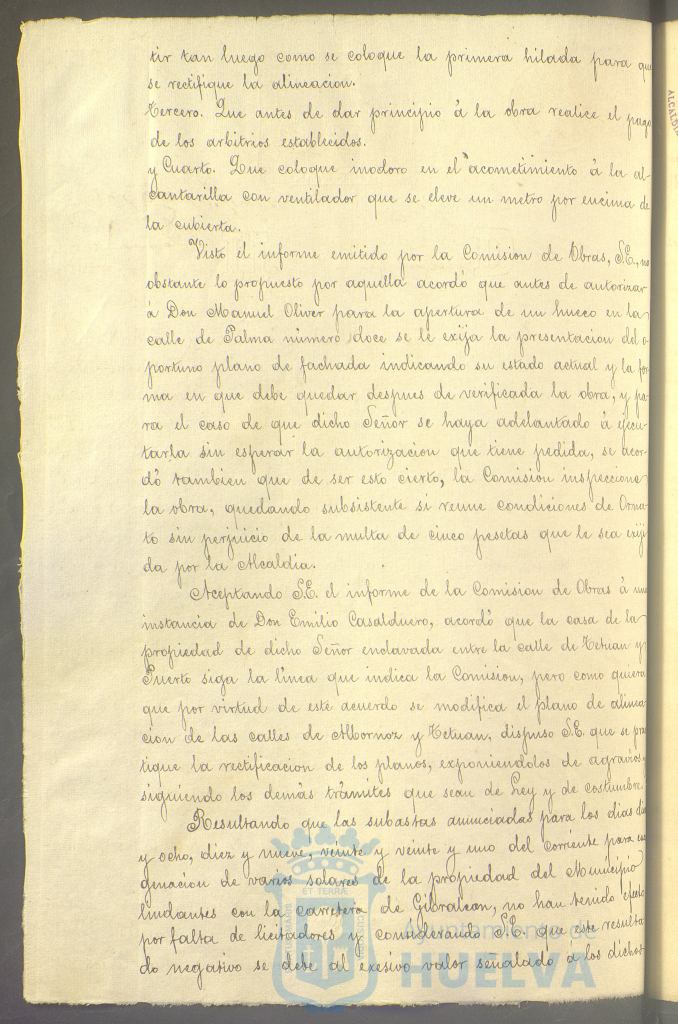 tir tan luego como se coloque la primera hilada para que
se rectifique la alineacion.
Tercero. Que antes de dar principio á la obra realice el pago
de los arbitrios establecidos.
y Cuarto. Que coloque inodoro en el acometimiento á la al-
cantarilla con ventilador que se eleve un metro por encima de
la cubierta.
Visto el informe emitido por la Comision de Obras, S.E., no
obstante lo propuesto por aquella acordó que antes de autorizar
á Don Manuel Oliver para la apertura de un hueco en la
calle de Palma número doce se le exija la presentacion del o-
portuno plano de fachada indicando su estado actual y la for
ma en que debe quedar despues de verificada la obra, y pa
ra el caso de que dicho Señor se haya adelantado á ejecu
tarla sin esperar la autorizacion que tiene pedida, se acor
dó tambien que de ser esto cierto, la Comision inspeccione
la obra, quedando subsistente si reune condiciones de Orna
to sin perjuicio de la multa de cinco pesetas que le sea exiji
da por la Alcaldia.
Aceptando S.E. el informe de la Comision de Obras á una
instancia de Don Emilio Casalduero, acordó que la casa de la
propiedad de dicho Señor enclavada entre la calle de Tetuan y
Puerto siga la línea que indica la Comision, pero como quiera
que por virtud de este acuerdo se modifica el plano de alinea
cion de las calles de Albornoz y Tetuan, dispuso S.E. que se prac
tique la rectificacion de los planos, exponiendolos de agravios,
siguiendo los demás trámites que sean de Ley y de costumbre.
Resultando que las subastas anunciadas para los dias diez
y ocho, diez y nueve, veinte y veinte y uno del corriente para ena
genacion de varios solares de la propiedad del Municipio
lindantes con la carretera de Gibraleon, no han tenido efecto
por falta de licitadores y considerando S.E. que este resulta
do negativo se debe al exesivo valor señalado á los dichos
ALCALDIA
ET TERRÆ
Ayuntamiento de
HUELVA